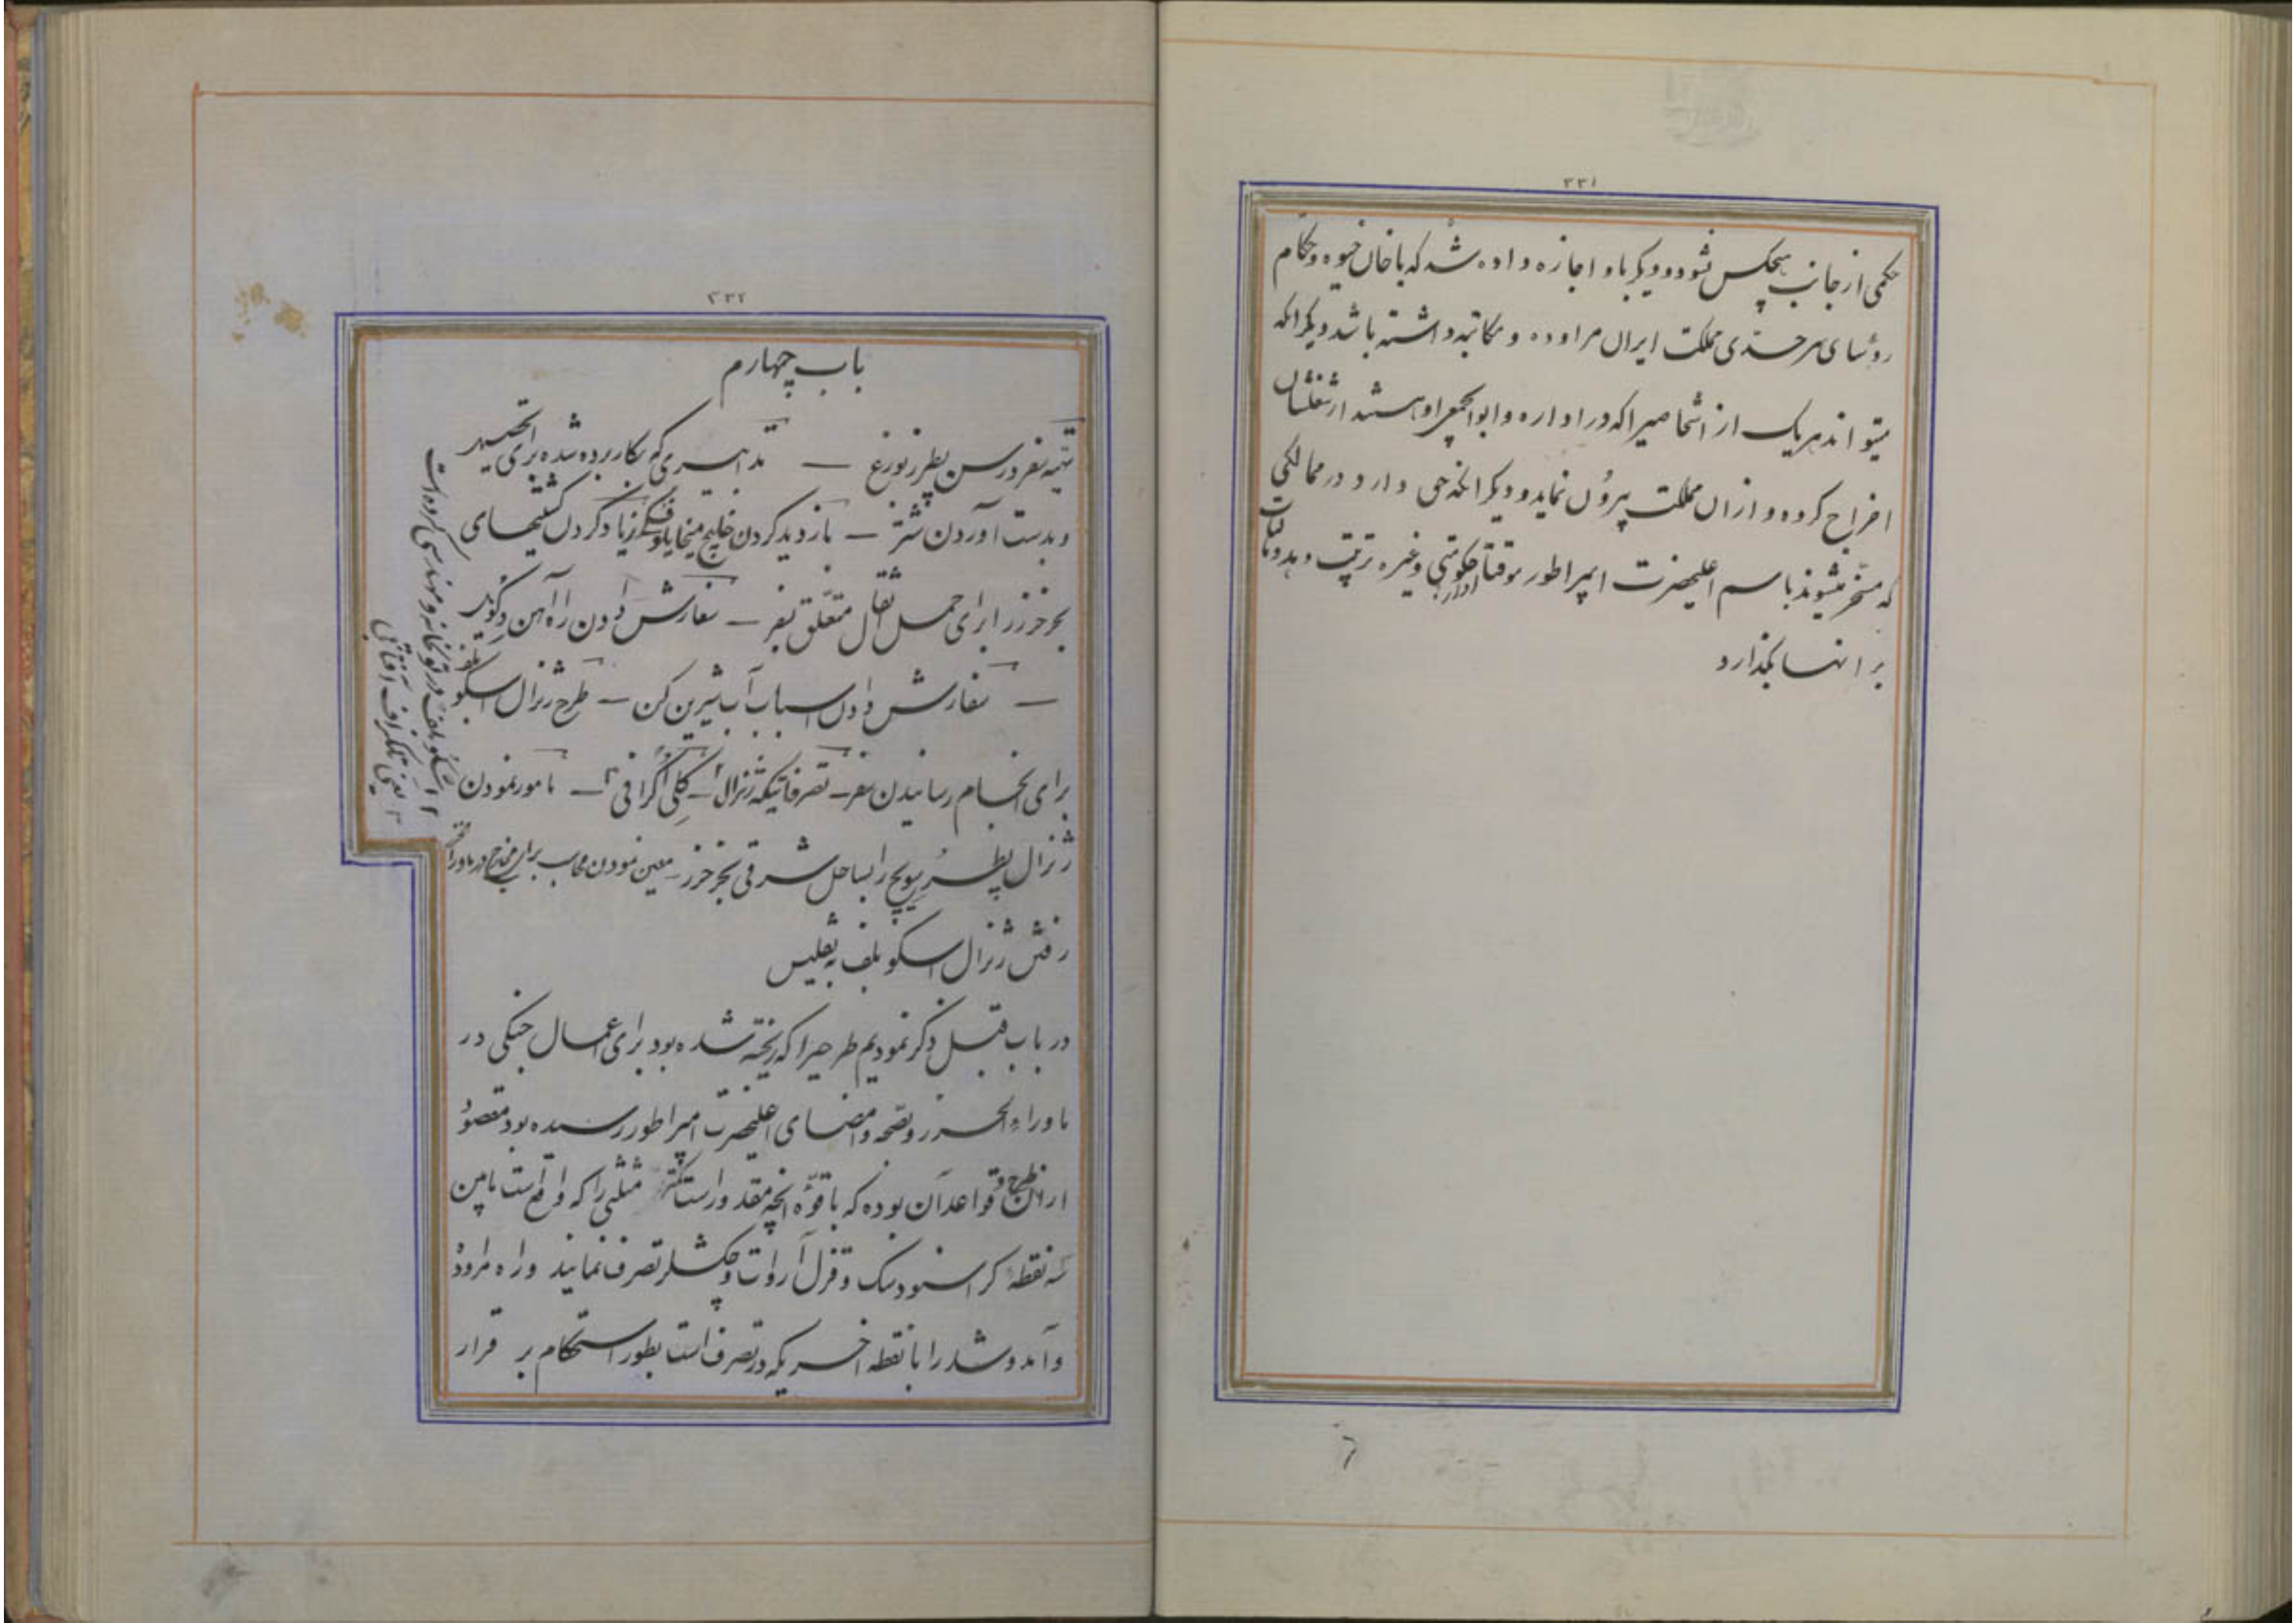 ۲۳۱
حکمی از جانب هیچکس نشود و دیگر باو اجازه داده شد که با خان خیوه و حکام
رؤسای سرحدی مملکت ایران مراوده و مکاتبه داشته باشد دیگر انکه
میتواند هر یک از اشخاصیرا که در اداره و ابوابجمعی او هستند از شغلشان
اخراج کرده و از ان مملکت بیرون نماید و دیگر انکه حق دارد در ممالکی
که مسخر میشوند باسم اعلیحضرت امپراطور موقتاً ادارۀ حکومتی و غیره ترتیب دهد و مالیات
بر انها بگذارد
۲۳۲
باب چهارم
تهیه سفر در سن پطرزبورغ — تدابیری که بکار برده شده برای تحصیل
و بدست آوردن شتر — بازدید کردن خلیج میخایلوفسکی زیاد کردن کشتیهای
بحر خزر برای حمل اثقال متعلق بسفر — سفارش دادن راه آهن دکویل
— سفارش دادن اسباب آب شیرین کن — طرح ژنرال اسکوبلف
برای انجام رسانیدن سفر — تصرفاتیکه ژنرال — کلی اگرافی ۳ — مامور نمودن
ژنرال پطرسویچ را بساحل شرقی بحر خزر — معین نمودن محاسب برای مخارج در ماوراء
رفتن ژنرال اسکوبلف به تفلیس
در باب قبل ذکر نمودیم طرحیرا که ریخته شده بود برای اعمال جنگی در
ماوراء الخزر و بصحه و امضای اعلیحضرت امپراطور رسیده بود مقصود
از ان طرح و قواعد آن بوده که با قوه انچه مقدور است مثلثی را که واقع است مابین
سه نقطه کراسنودسک و قزل آروات و چکشلر تصرف نمایند و راه مراوده
و آمد و شد را با نقطه اخیریکه در تصرف است بطور استحکام بر قرار
۲ اسکوبلف در توپخانه و مهندسی کرده است
۳ یعنی تلگراف آفتابی